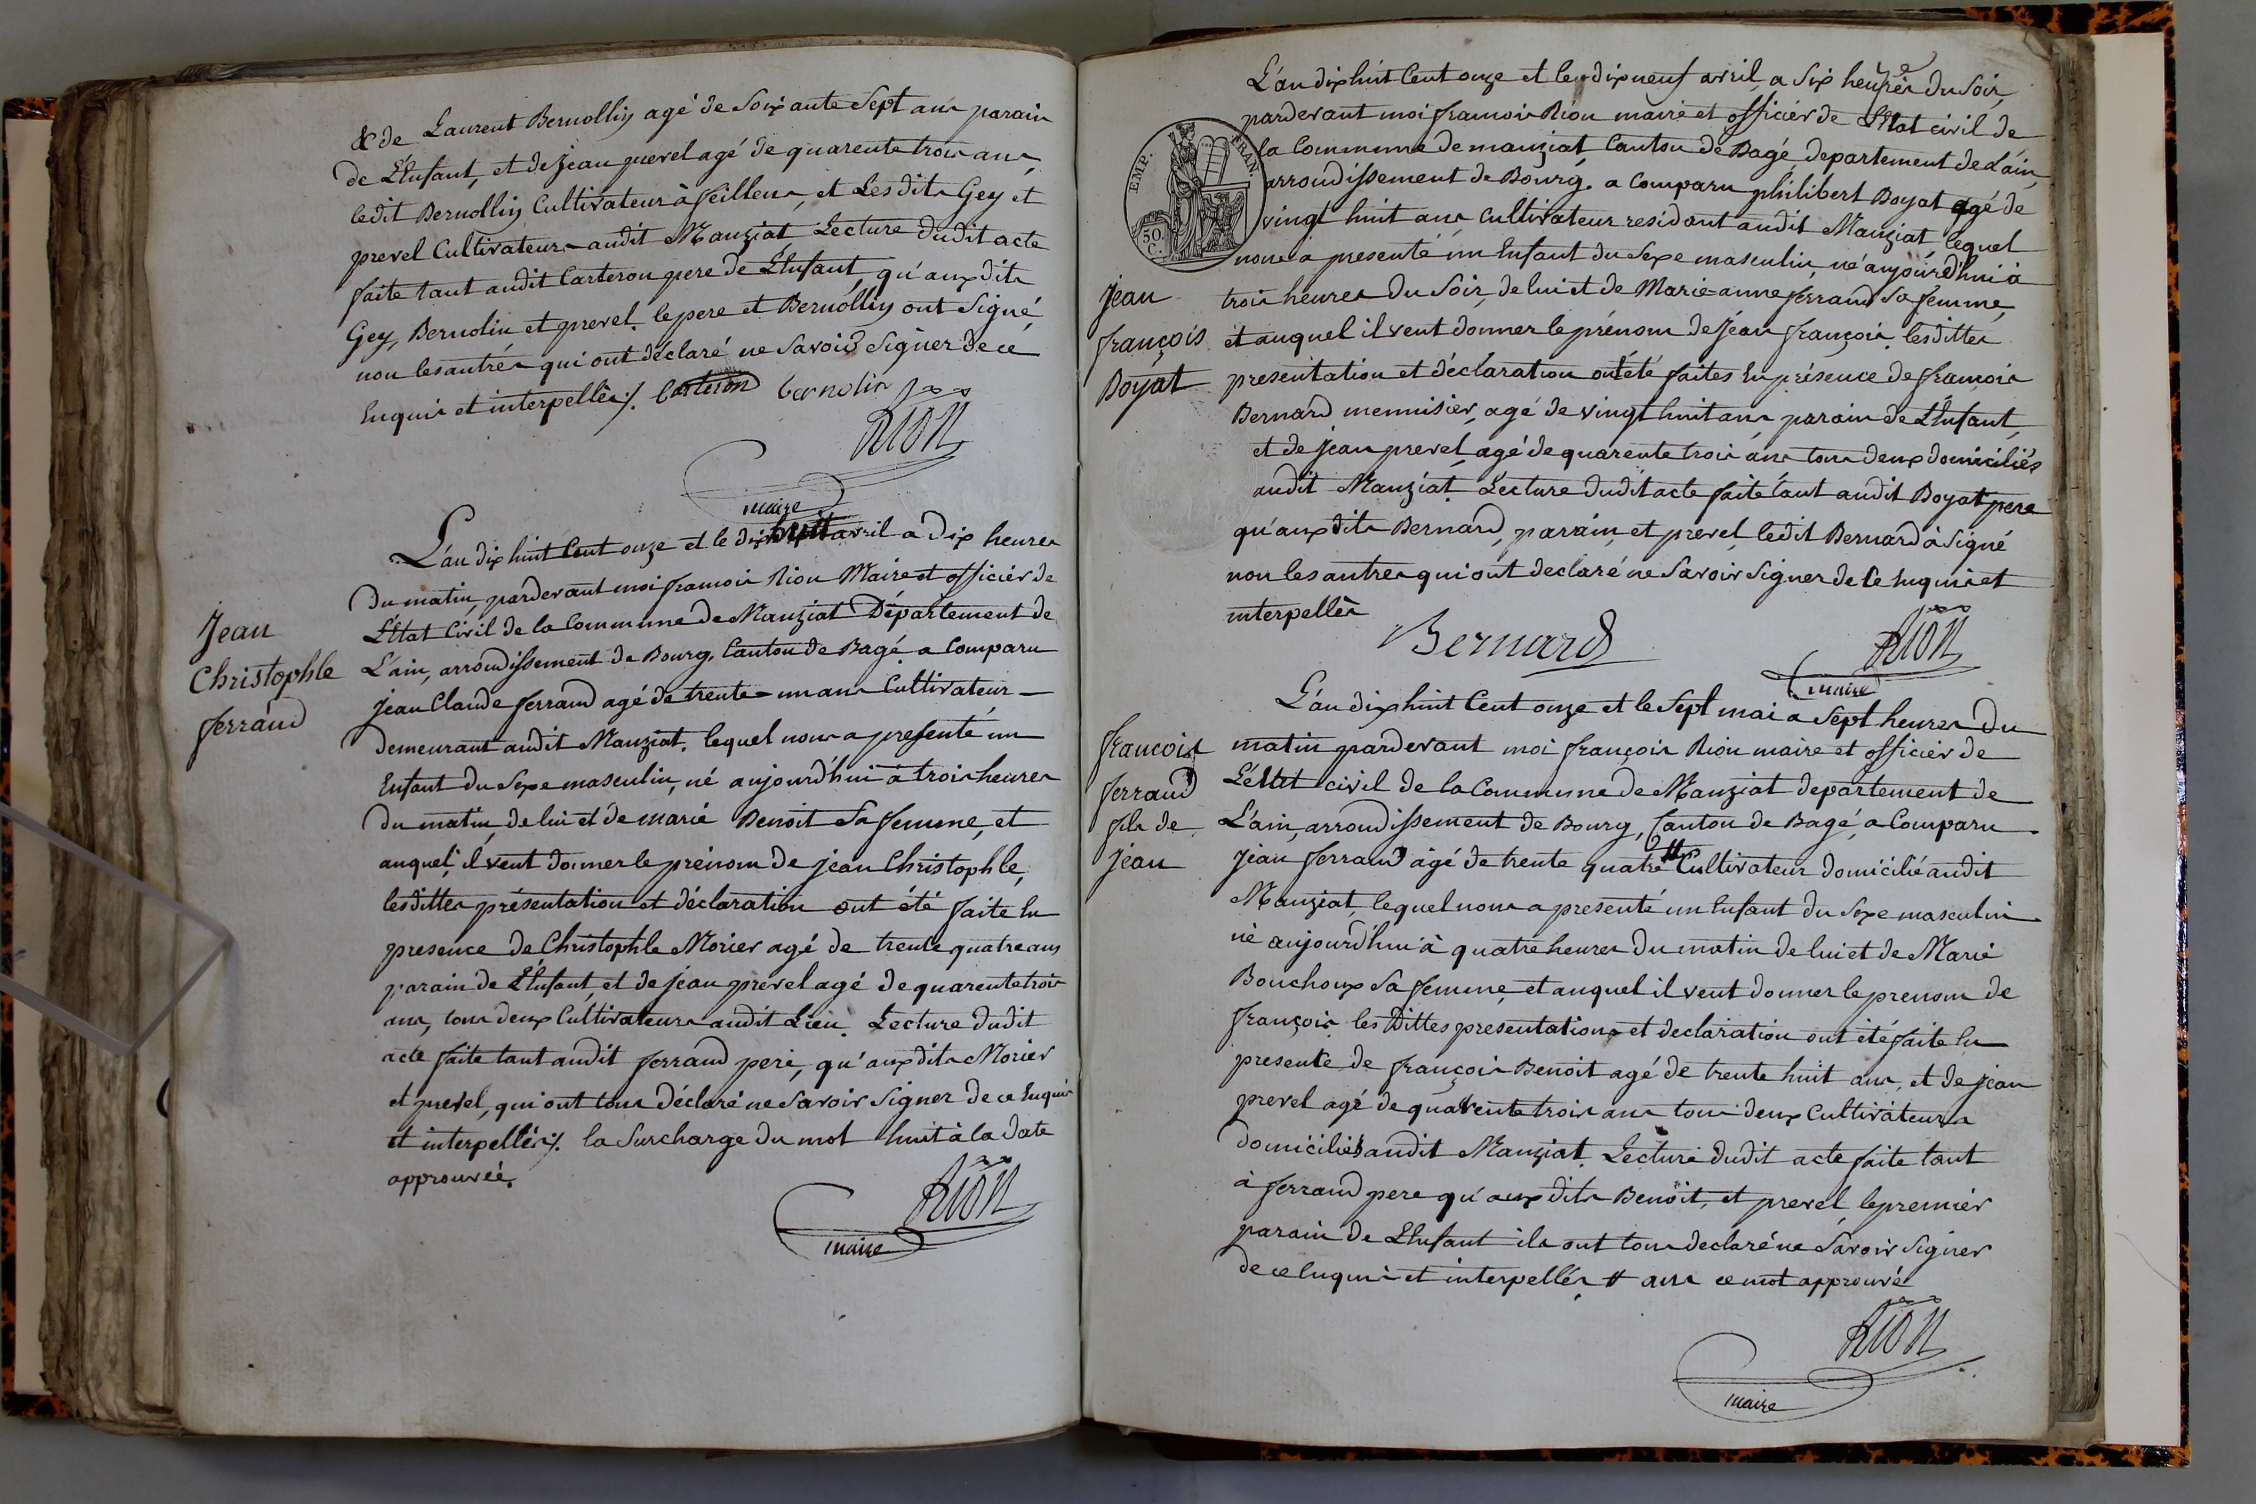 & de Laurent Bernollin agé de Soixante Sept ans parain
de L'Enfant, et de Jean prevel agé de quarente trois ans,
ledit Bernollin Cultivateur à feillens, et Lesdits Gey et
prevel Cultivateurs audit Manziat, Lecture dudit acte
faite tant audit Carteron pere de L'Enfant, qu'auxdits
Gey, Bernolin et prevel, le pere et Bernollin ont Signé,
non les autres qui ont déclaré ne Savoir Signer de ce
Enquis et interpellés /. Carteron bernolin
RION
maire
L'an dix huit Cent onze et le dix huit avril a dix heures
du matin, pardevant moi francois Rion Maire et officier de
L'Etat Civil de la Commune de Manziat Département de
L'ain, arrondissement de Bourg, Canton de Bagé, a Comparu
jean Claude ferrand agé de trente-un ans Cultivateur -
demeurant audit Manziat, lequel nous a presenté un
Enfant du Sexe masculin, né aujourd'hui à trois heures
du matin, de lui et de marie Benoit Sa femme, et
auquel, il veut donner le prénom de jean Christophle,
lesdittes présentation et déclaration ont été faite En
presence de Christophle Morier agé de trente quatre ans
parain de L'Enfant, et de jean prevel agé de quarente trois
ans, tous deux Cultivateurs audit Lieu. Lecture dudit
acte faite tant audit ferrand pere, qu'auxdits Morier
et prevel, qui ont tous Déclaré ne Savoir Signer de ce Enquis
et interpellés /. la Surcharge du mot huit à la date
approuvée.
RION
maire
Jean
Christophle
ferrand
L'an dix huit Cent onze et le dix neuf avril, a Six heures du Soir,
pardevant moi francois Rion maire et officier de L'Etat civil de
la Commune de manziat Canton de Bagé, departement de L'ain,
arrondissement de Bourg. a Comparu philibert Boyat agé de
vingt huit ans Cultivateur residant audit Manziat, lequel
nous a presenté un Enfant du Sexe masculin, né aujourd'hui à
trois heures du Soir, de lui et de Marie-anne ferrand Sa femme,
et auquel il veut donner le prénom de Jean françois, lesdittes
presentation et déclaration ont été faites En présence de françois
Bernard mennisier, agé de vingt huit ans parain de L'Enfant,
et de jean prevel, agé de quarente trois ans tous deux domiciliés
audit Manziat. Lecture dudit acte faite tant audit Boyat pere
qu'auxdits Bernard, parain, et prevel, ledit Bernard à Signé
non les autres qui ont declaré ne Savoir Signer de Ce Enquis et
interpellés
Bernard RION
maire
EMP. FRAN.
50
C.
Jean
françois
Boyat
L'an dix huit Cent onze et le Sept mai à Sept heures du
matin pardevant moi françois Rion maire et officier de
L'état civil de la Commune de Manziat departement de
L'ain, arrondissement de Bourg, Canton de Bagé, a Comparu
Jean ferrand agé de trente quatre # Cultivateur domicilié audit
Manziat, lequel nous a presenté un Enfant du Sexe masculin
né aujourd'hui à quatre heures du matin de lui et de Marie
Bouchoux Sa femme, et auquel il veut donner le prenom de
françois, les Dittes presentations et declaration ont été faite En
presente de françois Benoit agé de trente huit ans, et de jean
prevel agé de quarente trois ans tous deux Cultivateurs
domiciliés audit Manziat. Lecture dudit acte faite tant
à ferrand pere qu'auxdits Benoit, et prevel, le premier
parain de L'Enfant ils ont tous declaré ne Savoir Signer
de ce Enquis et interpellés # ans ce mot approuvé
RION
maire
francois
ferrand
fils de
jean